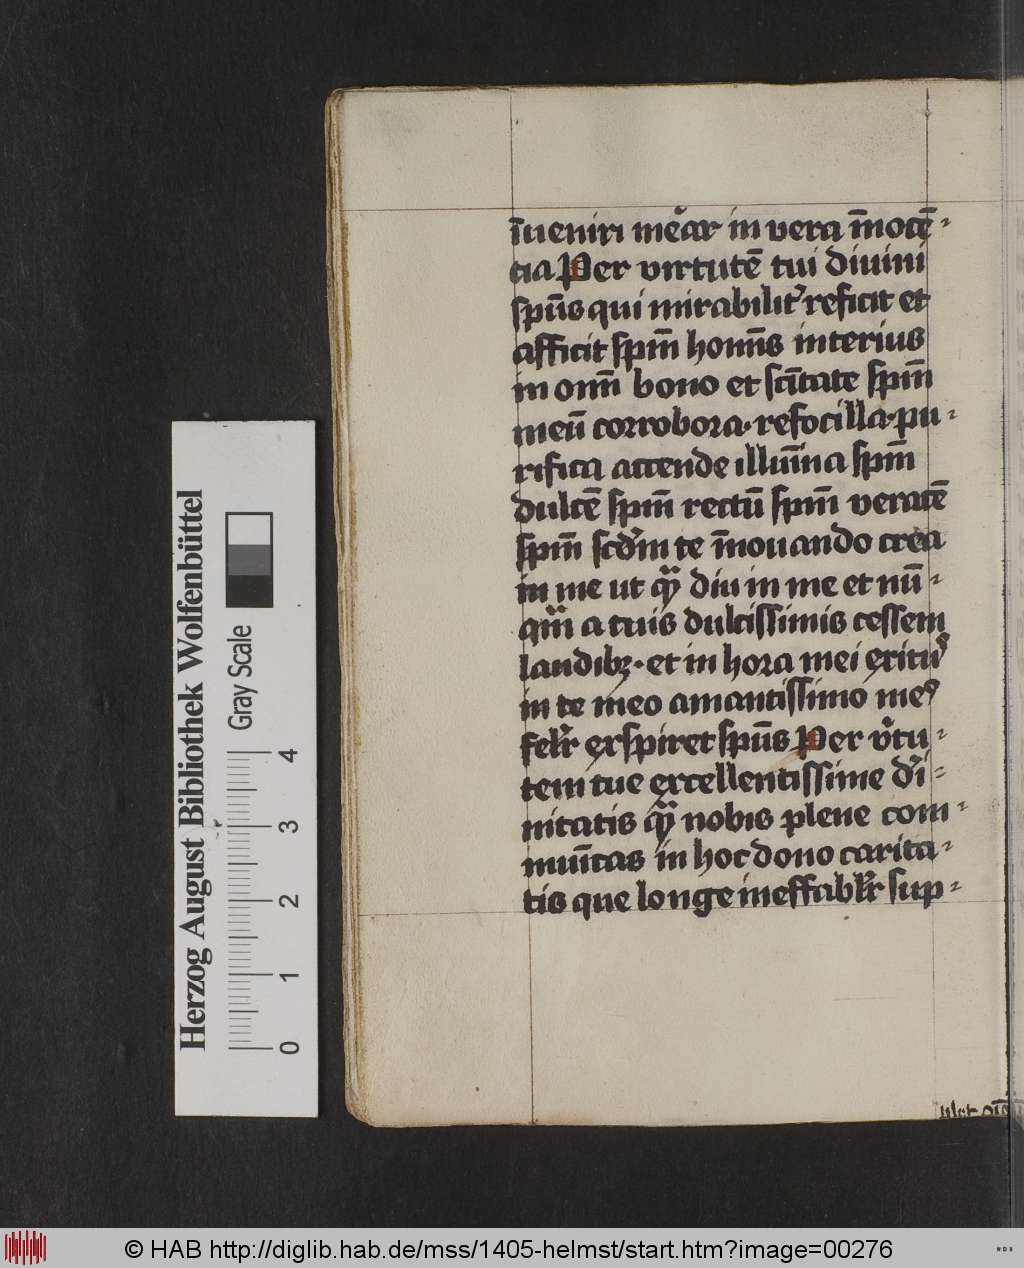 īueniri meār in vera īnocē-
tia Per virtutē tui diuini
spūs qui mirabilit᷑ reficit et
afficit spm̄ homīs interius
in omī bono et sc̄itate spm̄
meū corrobora · refocilla · pu-
rifica accende illuīna spm̄
dulcē spm̄ rectū spm̄ veracē
spm̄ scd̄m te īnouando crea
in me ut qͣm̄ diu in me et nū-
qͣm̄ a tuis dulcissimis cessem
laudibꝫ · et in hora mei exitꝰ
in te meo amantissimo meꝰ
felr̄ exspiret spūs Per v̄tu-
tem tue excellentissime di-
nitatis qͣm̄ nobis plene com-
mūicas in hoc dono carita-
tis que longe ineffabilr̄ sup-
Herzog August Bibliothek Wolfenbüttel
Gray Scale
0 1 2 3 4
© HAB http://diglib.hab.de/mss/1405-helmst/start.htm?image=00276